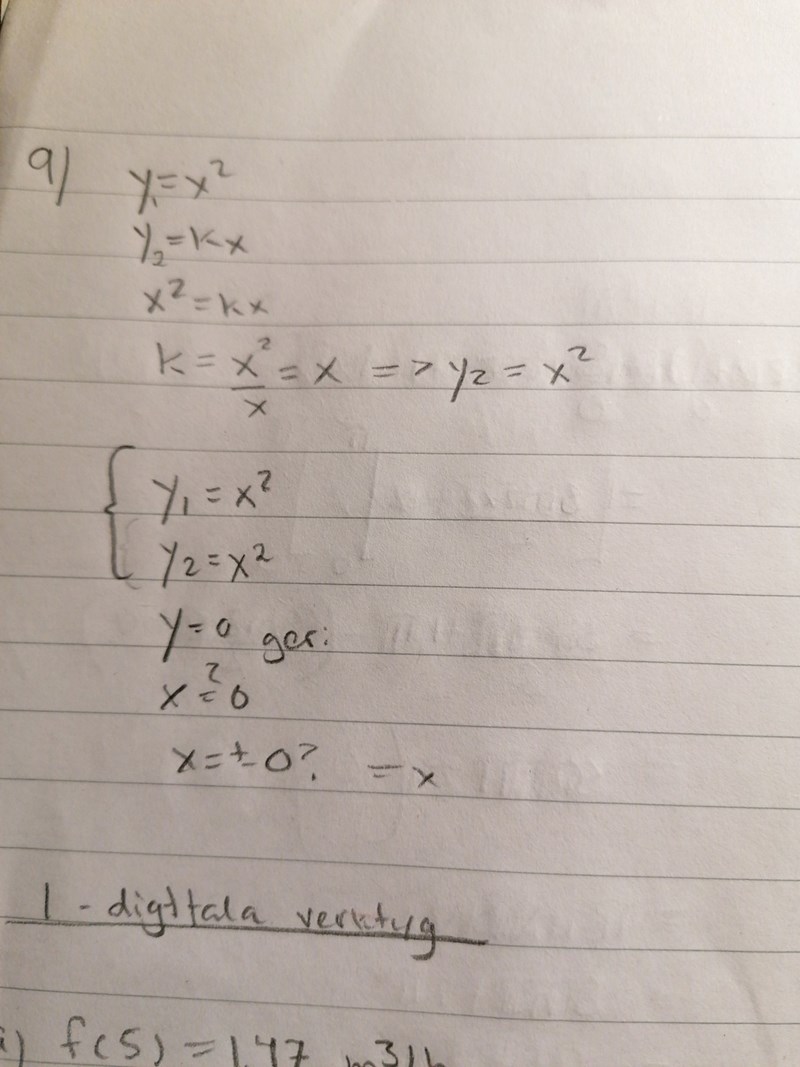 9) y₁=x²
y₂=kx
x²=kx
k = x²/x = x => y₂ = x²
y₁ = x²
y₂=x²
y=0 ger:
x²=0
x=±0? =x
1 - digitala verktyg
f(5) = 1,47 m3/h